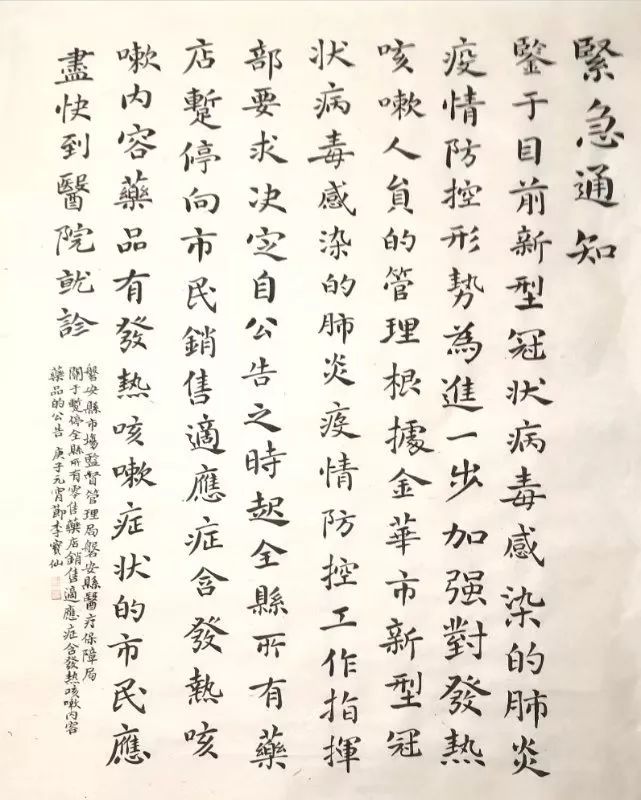 緊急通知
鑒于目前新型冠状病毒感染的肺炎
疫情防控形勢為進一步加强對發熱
咳嗽人員的管理根據金華市新型冠
状病毒感染的肺炎疫情防控工作指揮
部要求决定自公告之時起全縣所有藥
店蹔停向市民銷售適應症含發熱咳
嗽内容藥品有發熱咳嗽症状的市民應
盡快到醫院就診
磐安縣市場監督管理局磐安縣醫疗保障局
關于蹔停全縣所有零售藥店銷售適應症含發熱咳嗽内容
藥品的公告 庚子元宵節李寳仙